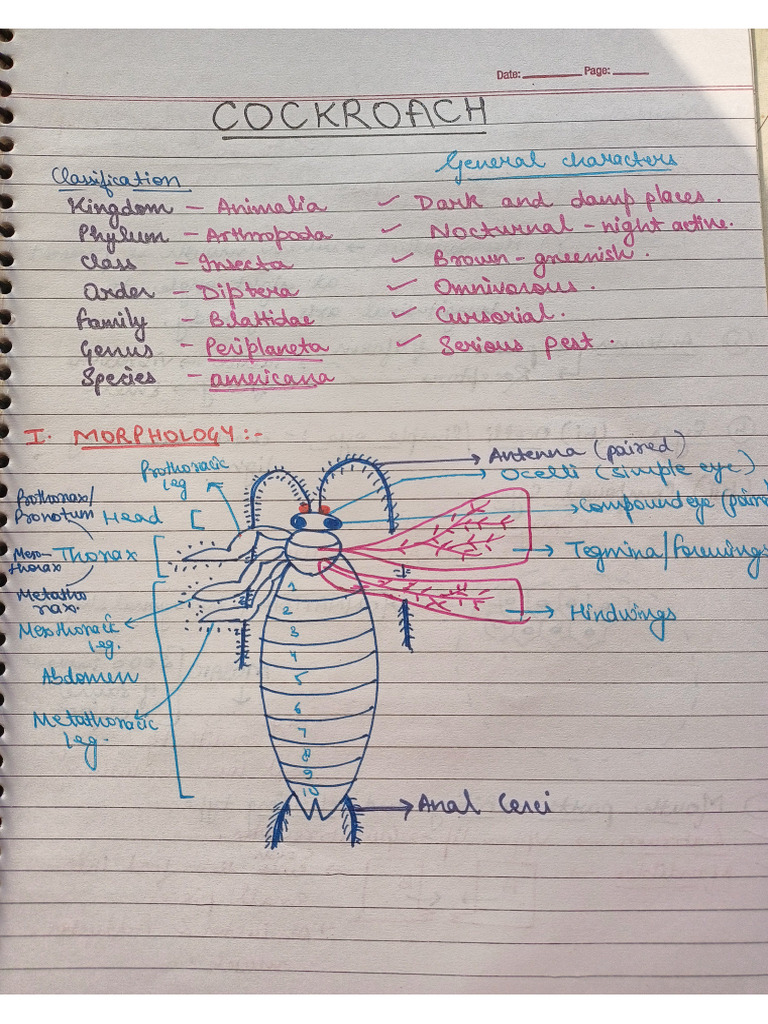 Date: Page:
COCKROACH
Classification
Kingdom - Animalia
Phylum - Arthropoda
Class - Insecta
Order - Diptera
Family - Blattidae
Genus - Periplaneta
Species - americana
General characters
✓ Dark and damp places.
✓ Nocturnal - night active.
✓ Brown - greenish.
✓ Omnivorous.
✓ Cursorial.
✓ Serious pest.
I. MORPHOLOGY:-
Prothoracic
leg
Antenna (paired)
Ocelli (simple eye)
Compound eye (paired
Prothorax/
Pronotum
Head
Meso-
thorax
Thorax
Metatho
rax.
Mesothoracic
leg.
Abdomen
Metathoracic
leg.
Tegmina/Forewings
Hindwings
1
2
3
4
5
6
7
8
9
10
Anal Cerci